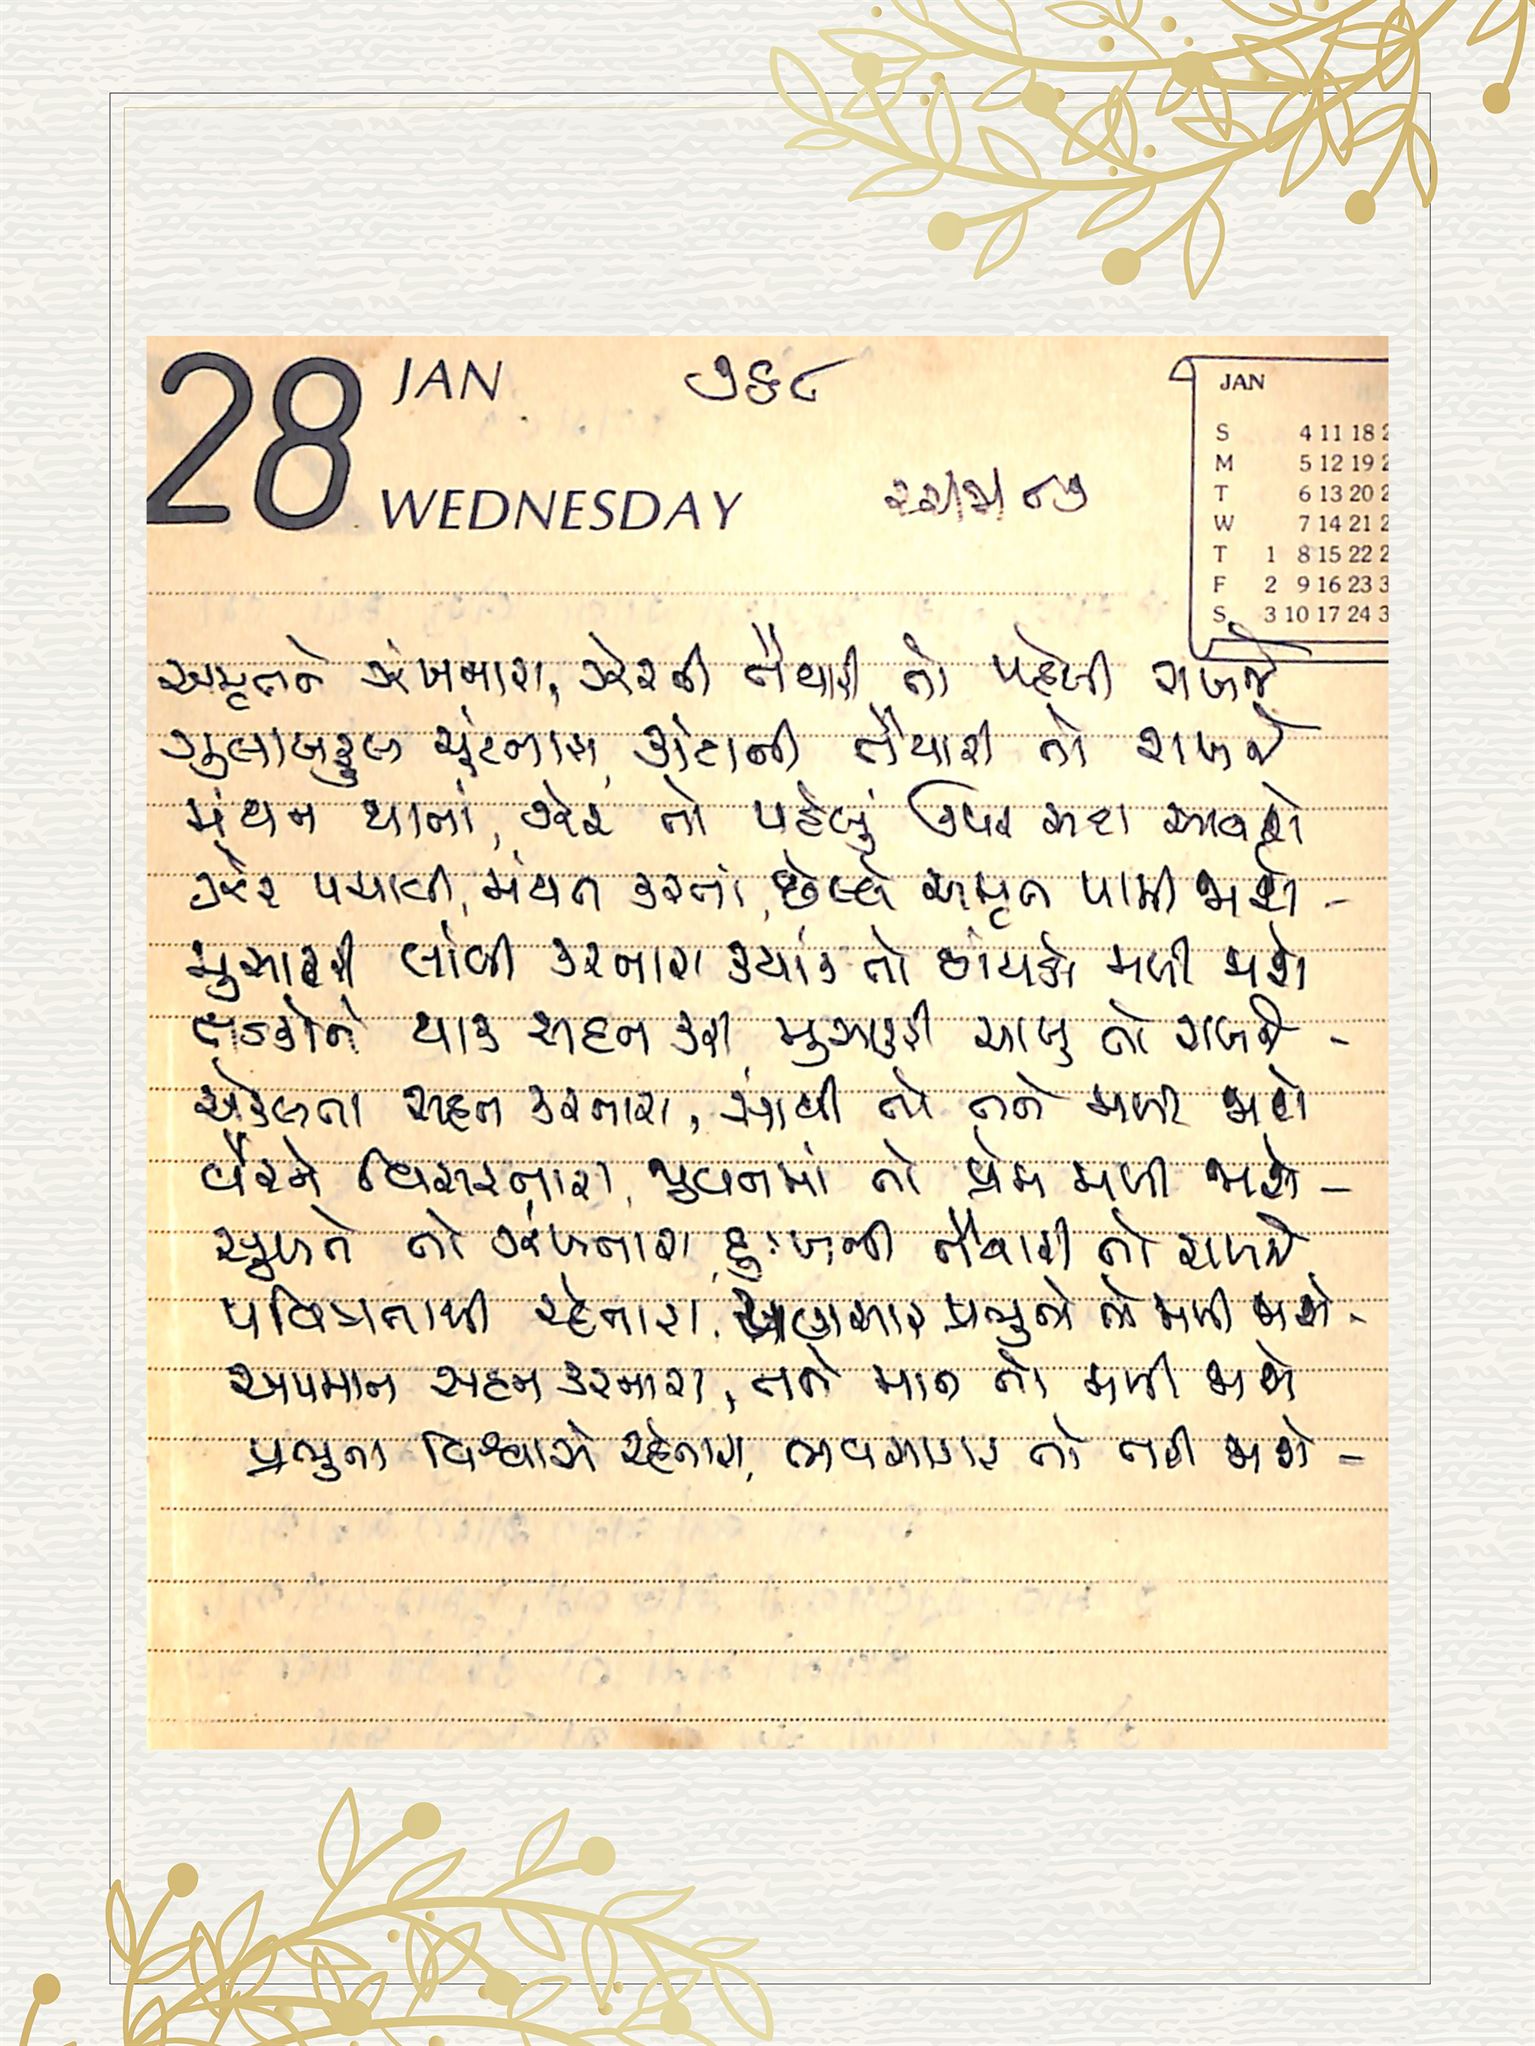 28 JAN
WEDNESDAY
JAN
S 4 11 18 2
M 5 12 19 2
T 6 13 20 2
W 7 14 21 2
T 1 8 15 22 2
F 2 9 16 23 3
S 3 10 17 24 3
અમૃતને ઝંખનારા, ઝેરની તૈયારી તો પહેલી રાખજે
ગુલાબફુલ ચૂંટનારા, કાંટાની તૈયારી તો રાખજે
મંથન થાતાં, ઝેર તો પહેલું ઉપર સદા આવશે
ઝેર પચાવી, મંથન કરતાં, છેલ્લે અમૃત પામી જાશે -
મુસાફરી લાંબી કરનારા ક્યાંક તો છાંયડો મળી જાશે
તડકોને થાક સહન કરી, મુસાફરી ચાલુ તો રાખજે -
એકલતા સહન કરનારા, સાથી તો તને મળી જાશે
વૈરને વિસરનારા, જીવનમાં તો પ્રેમ મળી જાશે -
સુખને તો ઝંખનારા, દુઃખની તૈયારી તો રાખજે
પવિત્રતાથી રહેનારા, પ્રભુનો તો મળી જાશે -
અપમાન સહન કરનારા, તને માન તો મળી જાશે
પ્રભુના વિશ્વાસે રહેનારા, ભવસાગર તો તરી જાશે -